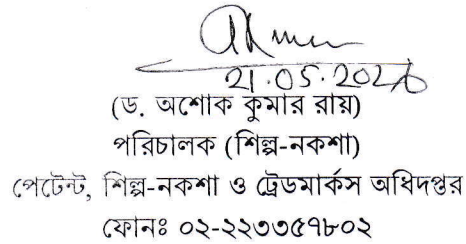 21.05.2026
(ড. অশোক কুমার রায়)
পরিচালক (শিল্প-নকশা)
পেটেন্ট, শিল্প-নকশা ও ট্রেডমার্কস অধিদপ্তর
ফোনঃ ০২-২২৩৩৫৭৮০২